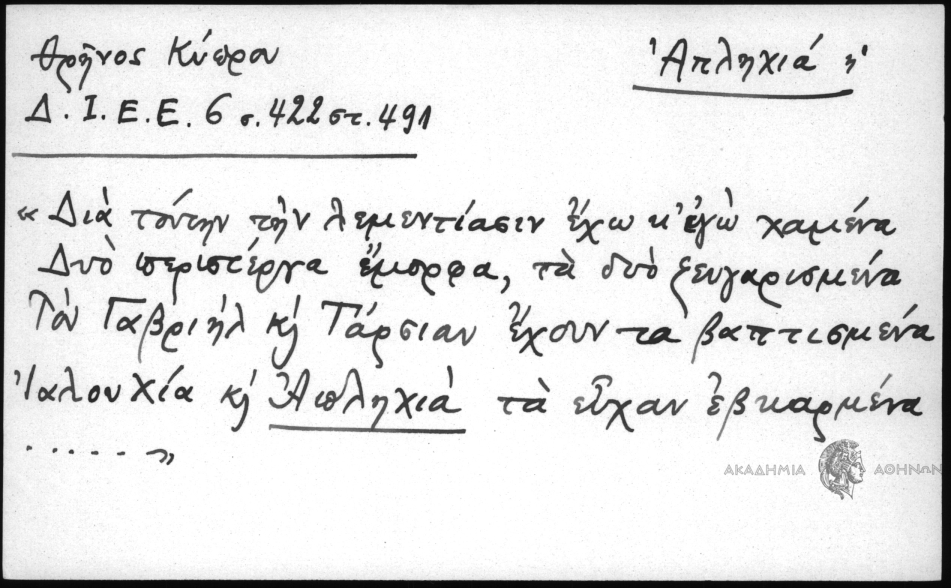 Θρῆνος Κύπρου
Ἀπληχιά ἡ
Δ. Ι. Ε. Ε. 6 σ. 422 στ. 491
«Διὰ τούτην τὴν λεμεντίασιν ἔχω κ' ἐγὼ χαμένα
Δυὸ περιστέργα ἔμορφα, τὰ δυὸ ζευγαρισμένα
Τὸν Γαβριὴλ κὴ Τάρσιαν ἔχουν τα βαπτισμένα
Ἰαλουχία κὴ Ἀπληχιά τὰ εἶχαν ἐβκαρμένα
. . . . . . »
ΑΚΑΔΗΜΙΑ ΑΘΗΝΩΝ